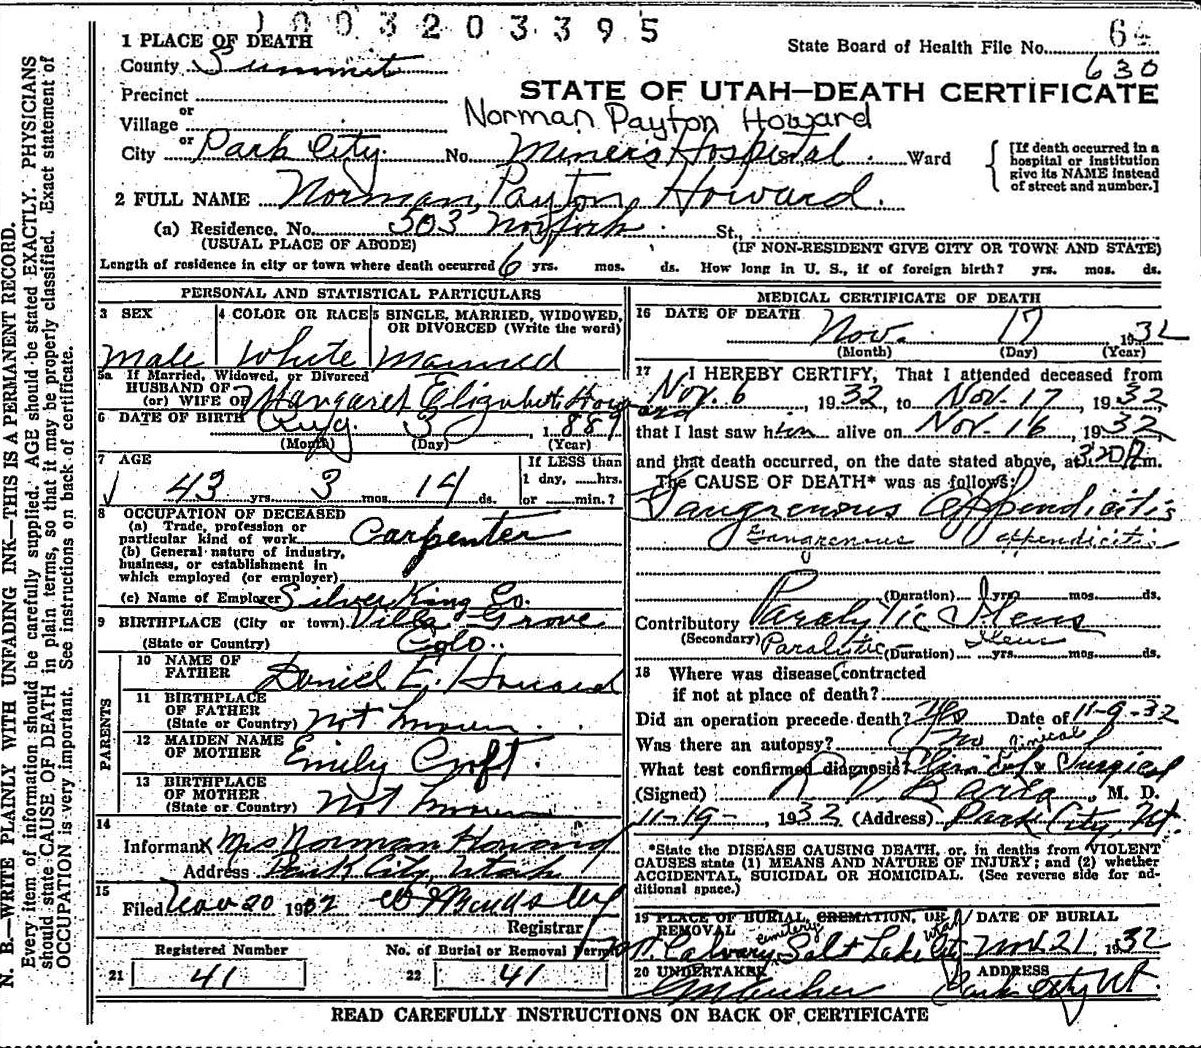 1003203395
1 PLACE OF DEATH
State Board of Health File No. 64
County Summit
630
Precinct
STATE OF UTAH—DEATH CERTIFICATE
or
Village
Norman Payton Howard
or
City Park City. No. Miners Hospital. Ward
[If death occurred in a hospital or institution give its NAME instead of street and number.]
2 FULL NAME Norman Payton Howard.
(a) Residence. No. 503 Norfork St.
(USUAL PLACE OF ABODE) (IF NON-RESIDENT GIVE CITY OR TOWN AND STATE)
Length of residence in city or town where death occurred 6 yrs. mos. ds. How long in U. S., if of foreign birth? yrs. mos. ds.
PERSONAL AND STATISTICAL PARTICULARS
3 SEX 4 COLOR OR RACE 5 SINGLE, MARRIED, WIDOWED,
OR DIVORCED (Write the word)
Male White Married
5a If Married, Widowed, or Divorced
HUSBAND OF
(or) WIFE OF Margaret Elizabeth Howard
6 DATE OF BIRTH Aug. 3 1889
(Month) (Day) (Year)
7 AGE
If LESS than
1 day, hrs.
43 yrs. 3 mos. 14 ds. or min.?
8 OCCUPATION OF DECEASED
(a) Trade, profession or
particular kind of work Carpenter
(b) General nature of industry,
business, or establishment in
which employed (or employer)
(c) Name of Employer Silver King Co.
9 BIRTHPLACE (City or town) Villa Grove
(State or Country) Colo.
PARENTS
10 NAME OF
FATHER Daniel E. Howard
11 BIRTHPLACE
OF FATHER
(State or Country) Not known.
12 MAIDEN NAME
OF MOTHER Emily Croft.
13 BIRTHPLACE
OF MOTHER
(State or Country) Not known
14
Informant Mrs Norman Howard
Address Park City, Utah
15
Filed Nov 20 1932
Registrar
Registered Number No. of Burial or Removal Permit
21 41 22 41
MEDICAL CERTIFICATE OF DEATH
16 DATE OF DEATH
Nov. 17 1932
(Month) (Day) (Year)
17 I HEREBY CERTIFY, That I attended deceased from
Nov. 6, 1932, to Nov. 17, 1932,
that I last saw him alive on Nov. 16, 1932,
and that death occurred, on the date stated above, at 320 P.m.
The CAUSE OF DEATH* was as follows:
Gangrenous Appendicitis
Gangrenous appendicitis
(Duration) yrs. mos. ds.
Contributory Paralytic Ileus
(Secondary) Paralitic Ileus
(Duration) yrs. mos. ds.
18 Where was disease contracted
if not at place of death?
Did an operation precede death? Yes Date of 11-9-32
Was there an autopsy? no
clinical
What test confirmed diagnosis? Clinical & Surgical
(Signed) M. D.
11-19-, 1932 (Address) Park City, Ut.
*State the DISEASE CAUSING DEATH, or, in deaths from VIOLENT
CAUSES state (1) MEANS AND NATURE OF INJURY; and (2) whether
ACCIDENTAL, SUICIDAL OR HOMICIDAL. (See reverse side for ad-
ditional space.)
19 PLACE OF BURIAL, CREMATION, OR
REMOVAL
DATE OF BURIAL
cemetery Utah
Mt. Calvary Salt Lake City Nov. 21, 1932
20 UNDERTAKER ADDRESS
Park City Ut
READ CAREFULLY INSTRUCTIONS ON BACK OF CERTIFICATE
N. B.—WRITE PLAINLY WITH UNFADING INK—THIS IS A PERMANENT RECORD.
Every item of information should be carefully supplied. AGE should be stated EXACTLY. PHYSICIANS
should state CAUSE OF DEATH in plain terms, so that it may be properly classified. Exact statement of
OCCUPATION is very important. See instructions on back of certificate.